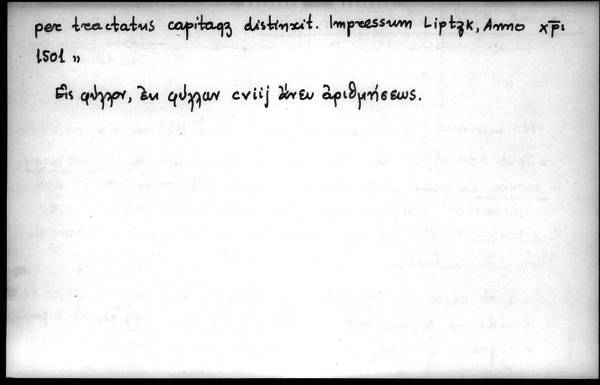 per tractatus capitaqȝ distinxit. Impressum Liptzk, Anno xp̅i
1501 „
Εἰς φύλλον, ἐκ φύλλων cviij ἄνευ ἀριθμήσεως.